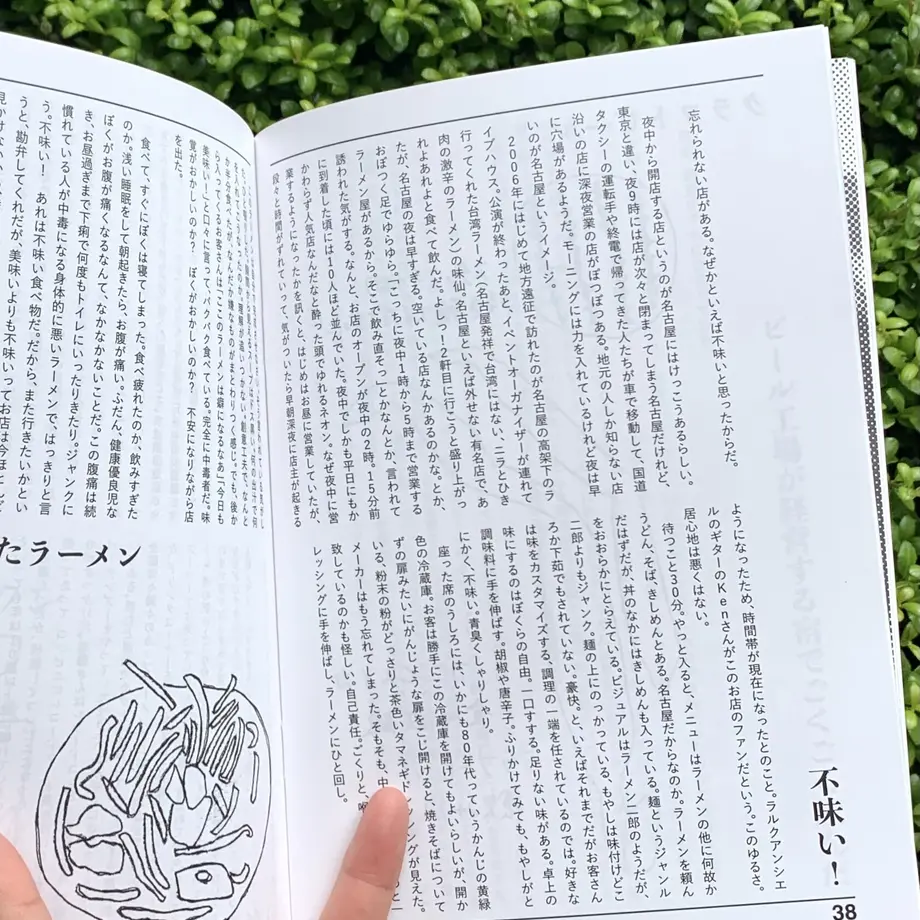 不味い！
忘れられない店がある。なぜかといえば不味いと思ったからだ。
夜中から開店する店というのが名古屋にはけっこうあるらしい。
東京と違い、夜9時には店が次々と閉まってしまう名古屋だけれど、
タクシーの運転手や終電で帰ってきた人たちが車で移動して、国道
沿いの店に深夜営業の店がぽつぽつある。地元の人しか知らない店
に穴場があるようだ。モーニングには力を入れているけれど夜は早
いのが名古屋というイメージ。
2006年にはじめて地方遠征で訪れたのが名古屋の高架下のラ
イブハウス。公演が終わったあと、イベントオーガナイザーが連れて
行ってくれた台湾ラーメン（名古屋発祥で台湾にはない、ニラとひき
肉の激辛のラーメン）の味仙。名古屋といえば外せない有名店で、あ
れよあれよと食べて飲んだ。よしっ！2軒目に行こうと盛り上がっ
たが、名古屋の夜は早すぎる。空いている店なんかあるのかな。とか、
おぼつく足でゆらゆら。「こっちに夜中1時から5時まで営業する
ラーメン屋があるから。そこで飲み直そっ」とかなんとか、言われて
誘われた気がする。なんと、お店のオープンが夜中の2時。15分前
に到着した頃には10人ほど並んでいた。夜中でしかも平日にもか
かわらず人気店なんだなと酔った頭でゆれるネオン。なぜ夜中に営
業するようになったかを訊くと、はじめはお昼に営業していたが、
段々と時間がずれていって、気がついたら早朝深夜に店主が起きる
ようになったため、時間帯が現在になったとのこと。ラルクアンシエ
ルのギターのKenさんがこのお店のファンだという。このゆるさ。
居心地は悪くはない。
待つこと30分。やっと入ると、メニューはラーメンの他に何故か
うどん、そば、きしめんとある。名古屋だからなのか。ラーメンを頼ん
だはずだが、丼のなかにはきしめんも入っている。麺というジャンル
をおおらかにとらえている。ビジュアルはラーメン二郎のようだが、
二郎よりもジャンク。麺の上にのっかっている、もやしは味付けどこ
ろか下茹でもされていない。豪快。と、いえばそれまでだがお客さん
は味をカスタマイズする、調理の一端を任されているのでは。好きな
味にするのはぼくらの自由。一口する。足りない味がある。卓上の
調味料に手を伸ばす。胡椒や唐辛子。ふりかけてみても、もやしがと
にかく、不味い。青臭くしゃりしゃり。
座った席のうしろには、いかにも80年代っていうかんじの黄緑
色の冷蔵庫。お客は勝手にこの冷蔵庫を開けてもよいらしいが、開か
ずの扉みたいにがんじょうな扉をこじ開けると、焼きそばについて
いる、粉末の粉がどっさりと茶色いタマネギド
ングが見えた。
メーカーはもう忘れてしまった。そもそも、中
致しているのかも怪しい。自己責任。ごくりと、
レッシングに手を伸ばし、ラーメンにひと回し。
38
か半分食べたが、なんだか嫌なものがまとわりつく感じ。でも、後か
ら入ってくるお客さんは「ここのラーメンは癖になるなあ」「今日も
美味い！」と口々に言って、パクパク食べている。完全に中毒者だ。味
覚がおかしいのか？　ぼくがおかしいのか？　不安になりながら店
を出た。
食べて、すぐにぼくは寝てしまった。食べ疲れたのか、飲みすぎた
のか。浅い睡眠をして朝起きたら、お腹が痛い。ふだん、健康優良児な
ぼくがお腹が痛くなるなんて、なかなかないことだ。この腹痛は続
き、お昼過ぎまで下痢で何度もトイレにいったりきたり。ジャンクに
慣れている人が中毒になる身体的に悪いラーメンで、はっきりと言
う。不味い！　あれは不味い食べ物だ。だから、また行きたいかとい
うと、勘弁してくれだが、美味いよりも不味いってお店は今ほとんど
たラーメン